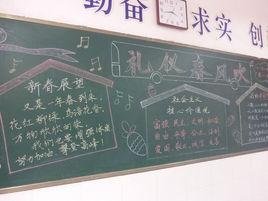 勤奋 求实 创
礼仪春风吹
新春展望
又是一年春到来，
花红柳绿，鸟语花香
万物欣欣向荣
我们也要增强体质
努力加油，攀登高峰！
社会主义
核心价值观
富强 民主 文明 和谐
自由 平等 公正 法制
爱国 敬业 诚信 友善